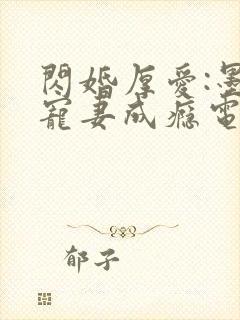 閃婚厚愛:墨
寵妻成瘾電
郁子